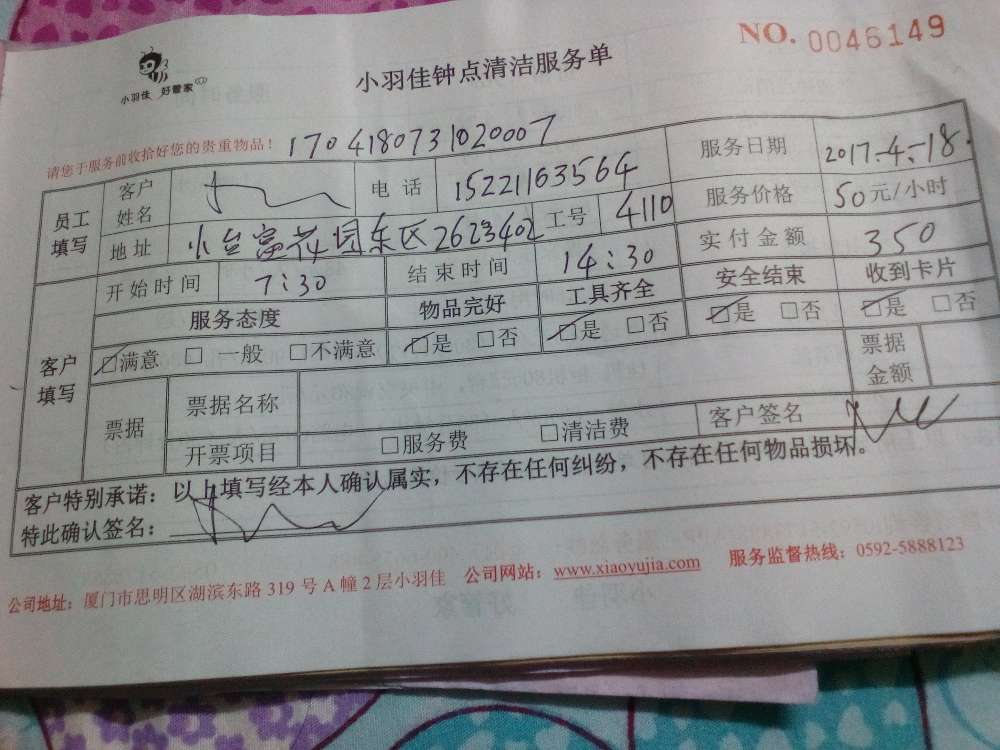 NO. 0046149
小羽佳 好管家
小羽佳钟点清洁服务单
请您于服务前收拾好您的贵重物品! 1704180731020007
员工填写 客户姓名 电话 15221163564 服务日期 2017.4.18.
地址 东区2623402 工号 4110 服务价格 50元/小时
开始时间 7:30 结束时间 14:30 实付金额 350
客户填写 服务态度 物品完好 工具齐全 安全结束 收到卡片
□满意 □一般 □不满意 □是 □否 □是 □否 □是 □否 □是 □否
票据 票据名称 票据金额
开票项目 □服务费 □清洁费 客户签名
客户特别承诺:以上填写经本人确认属实,不存在任何纠纷,不存在任何物品损坏。
特此确认签名:
公司地址:厦门市思明区湖滨东路319号A幢2层小羽佳 公司网站:www.xiaoyujia.com 服务监督热线:0592-5888123